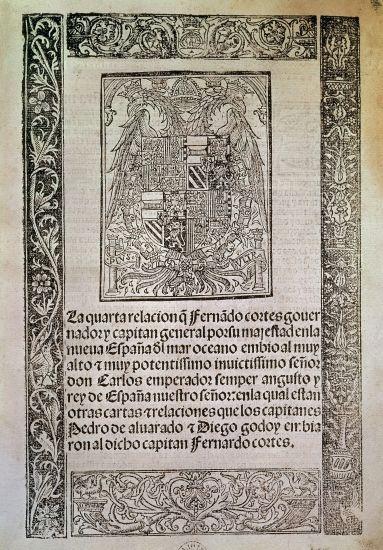 La quarta relacion q̃ Fernãdo cortes gouer
nador y capitan general por su majestad en la
nueua España dl mar oceano embio al muy
alto ⁊ muy potentissimo inuictissimo señor
don Carlos emperador semper augusto y
rey de España nuestro señor: en la qual estan
otras cartas ⁊ relaciones que los capitanes
Pedro de aluarado ⁊ Diego godoy embia
ron al dicho capitan Fernardo cortes.